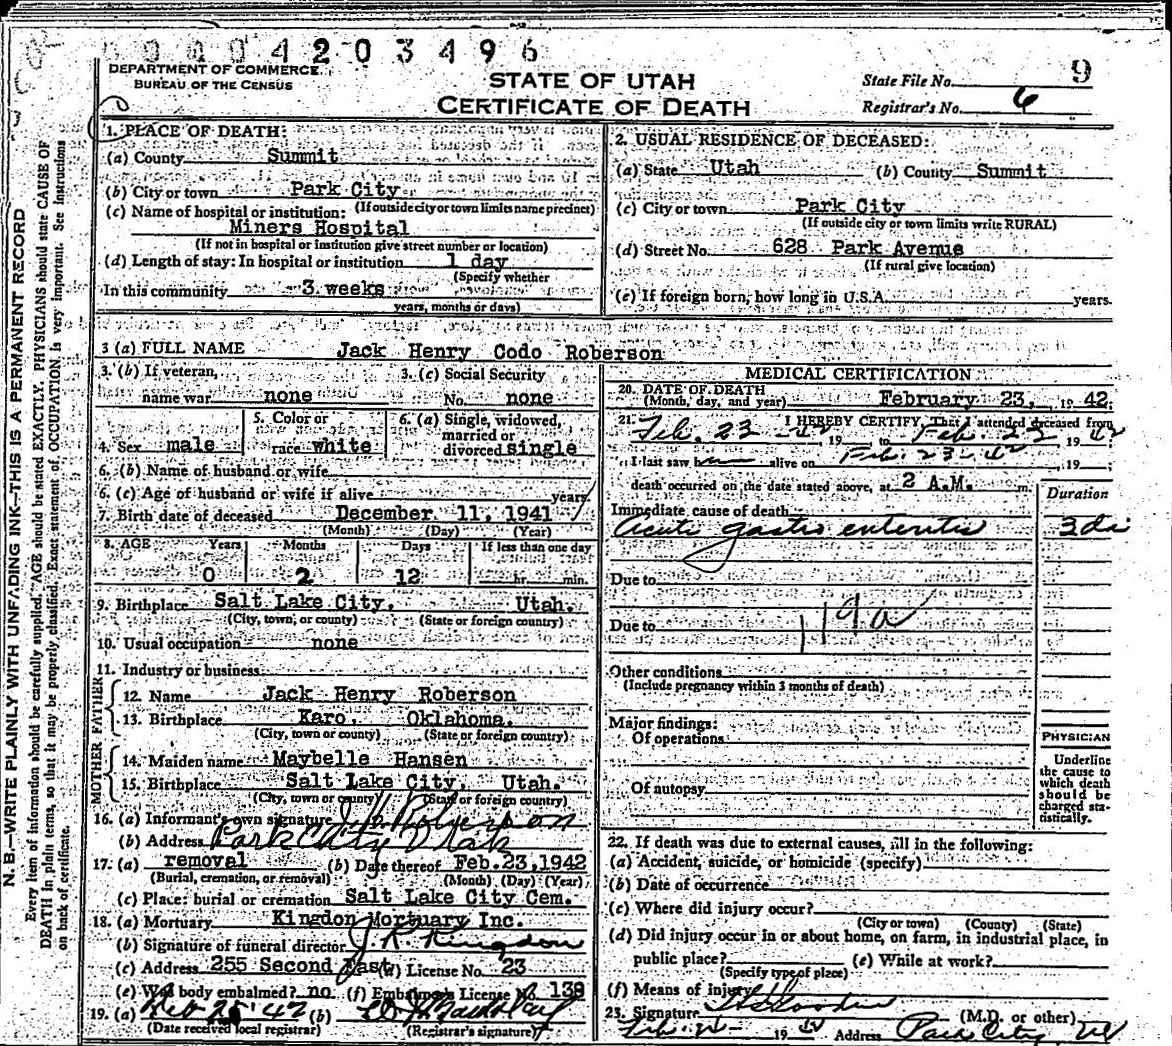 0004203496
DEPARTMENT OF COMMERCE
BUREAU OF THE CENSUS
STATE OF UTAH
CERTIFICATE OF DEATH
State File No. 9
Registrar's No. 6
N. B.—WRITE PLAINLY WITH UNFADING INK—THIS IS A PERMANENT RECORD
Every item of information should be carefully supplied. AGE should be stated EXACTLY. PHYSICIANS should state CAUSE OF
DEATH in plain terms, so that it may be properly classified. Exact statement of OCCUPATION is very important. See Instructions
on back of certificate.
1. PLACE OF DEATH:
(a) County Summit
(b) City or town Park City
(If outside city or town limits name precinct)
(c) Name of hospital or institution:
Miners Hospital
(If not in hospital or institution give street number or location)
(d) Length of stay: In hospital or institution 1 day
(Specify whether
In this community 3 weeks
years, months or days)
2. USUAL RESIDENCE OF DECEASED:
(a) State Utah (b) County Summit
(c) City or town Park City
(If outside city or town limits write RURAL)
(d) Street No. 628 Park Avenue
(If rural give location)
(e) If foreign born, how long in U.S.A. years.
3 (a) FULL NAME Jack Henry Codo Roberson
3. (b) If veteran,
name war none
3. (c) Social Security
No. none
4. Sex male
5. Color or
race white
6. (a) Single, widowed,
married or
divorced single
6. (b) Name of husband or wife
6. (c) Age of husband or wife if alive years
7. Birth date of deceased December 11, 1941
(Month) (Day) (Year)
8. AGE Years Months Days If less than one day
0 2 12 hr. min.
9. Birthplace Salt Lake City, Utah.
(City, town, or county) (State or foreign country)
10. Usual occupation none
11. Industry or business
FATHER
12. Name Jack Henry Roberson
13. Birthplace Karo, Oklahoma.
(City, town or county) (State or foreign country)
MOTHER
14. Maiden name Maybelle Hansen
15. Birthplace Salt Lake City, Utah.
(City, town or county) (State or foreign country)
16. (a) Informant's own signature J. H. Roberson
(b) Address Park City Utah
17. (a) removal (b) Date thereof Feb.23,1942
(Burial, cremation, or removal) (Month) (Day) (Year)
(c) Place: burial or cremation Salt Lake City Cem.
18. (a) Mortuary Kingdon Mortuary Inc.
(b) Signature of funeral director J. R. Kingdon
(c) Address 255 Second East License No. 23
(e) Was body embalmed? no (f) Embalmer's License No. 139
19. (a) Feb 25 42 (b)
(Date received local registrar) (Registrar's signature)
MEDICAL CERTIFICATION
20. DATE OF DEATH
(Month, day, and year) February 23, 1942.
21. I HEREBY CERTIFY, That I attended deceased from
Feb. 23 - 42 19 to Feb. 23 1942
I last saw him alive on Feb. 23-42, 19
death occurred on the date stated above, at 2 A.M. m.
Immediate cause of death
Duration
Acute gastro enteritis 3 da
Due to
Due to
119a
Other conditions
(Include pregnancy within 3 months of death)
Major findings:
Of operations
Of autopsy
PHYSICIAN
Underline
the cause to
which death
should be
charged sta-
tistically.
22. If death was due to external causes, fill in the following:
(a) Accident, suicide, or homicide (specify)
(b) Date of occurrence
(c) Where did injury occur?
(City or town) (County) (State)
(d) Did injury occur in or about home, on farm, in industrial place, in
public place? (e) While at work?
(Specify type of place)
(f) Means of injury
23. Signature (M.D. or other)
Feb. 19 42 Address Park City, Ut